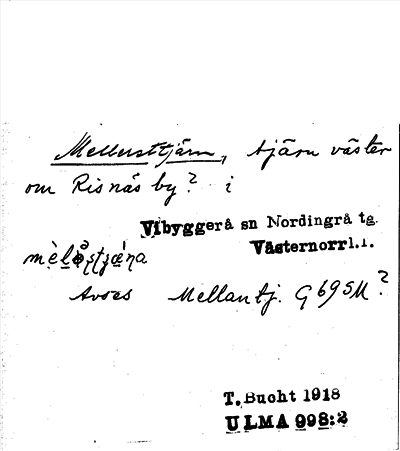 Mellersttjärn, tjärn väster
om Risnäs by? i
Vibyggerå sn Nordingrå tg.
Västernorrl.l.
Avses Mellantj. G69SM?
T. Bucht 1918
ULMA 998:2